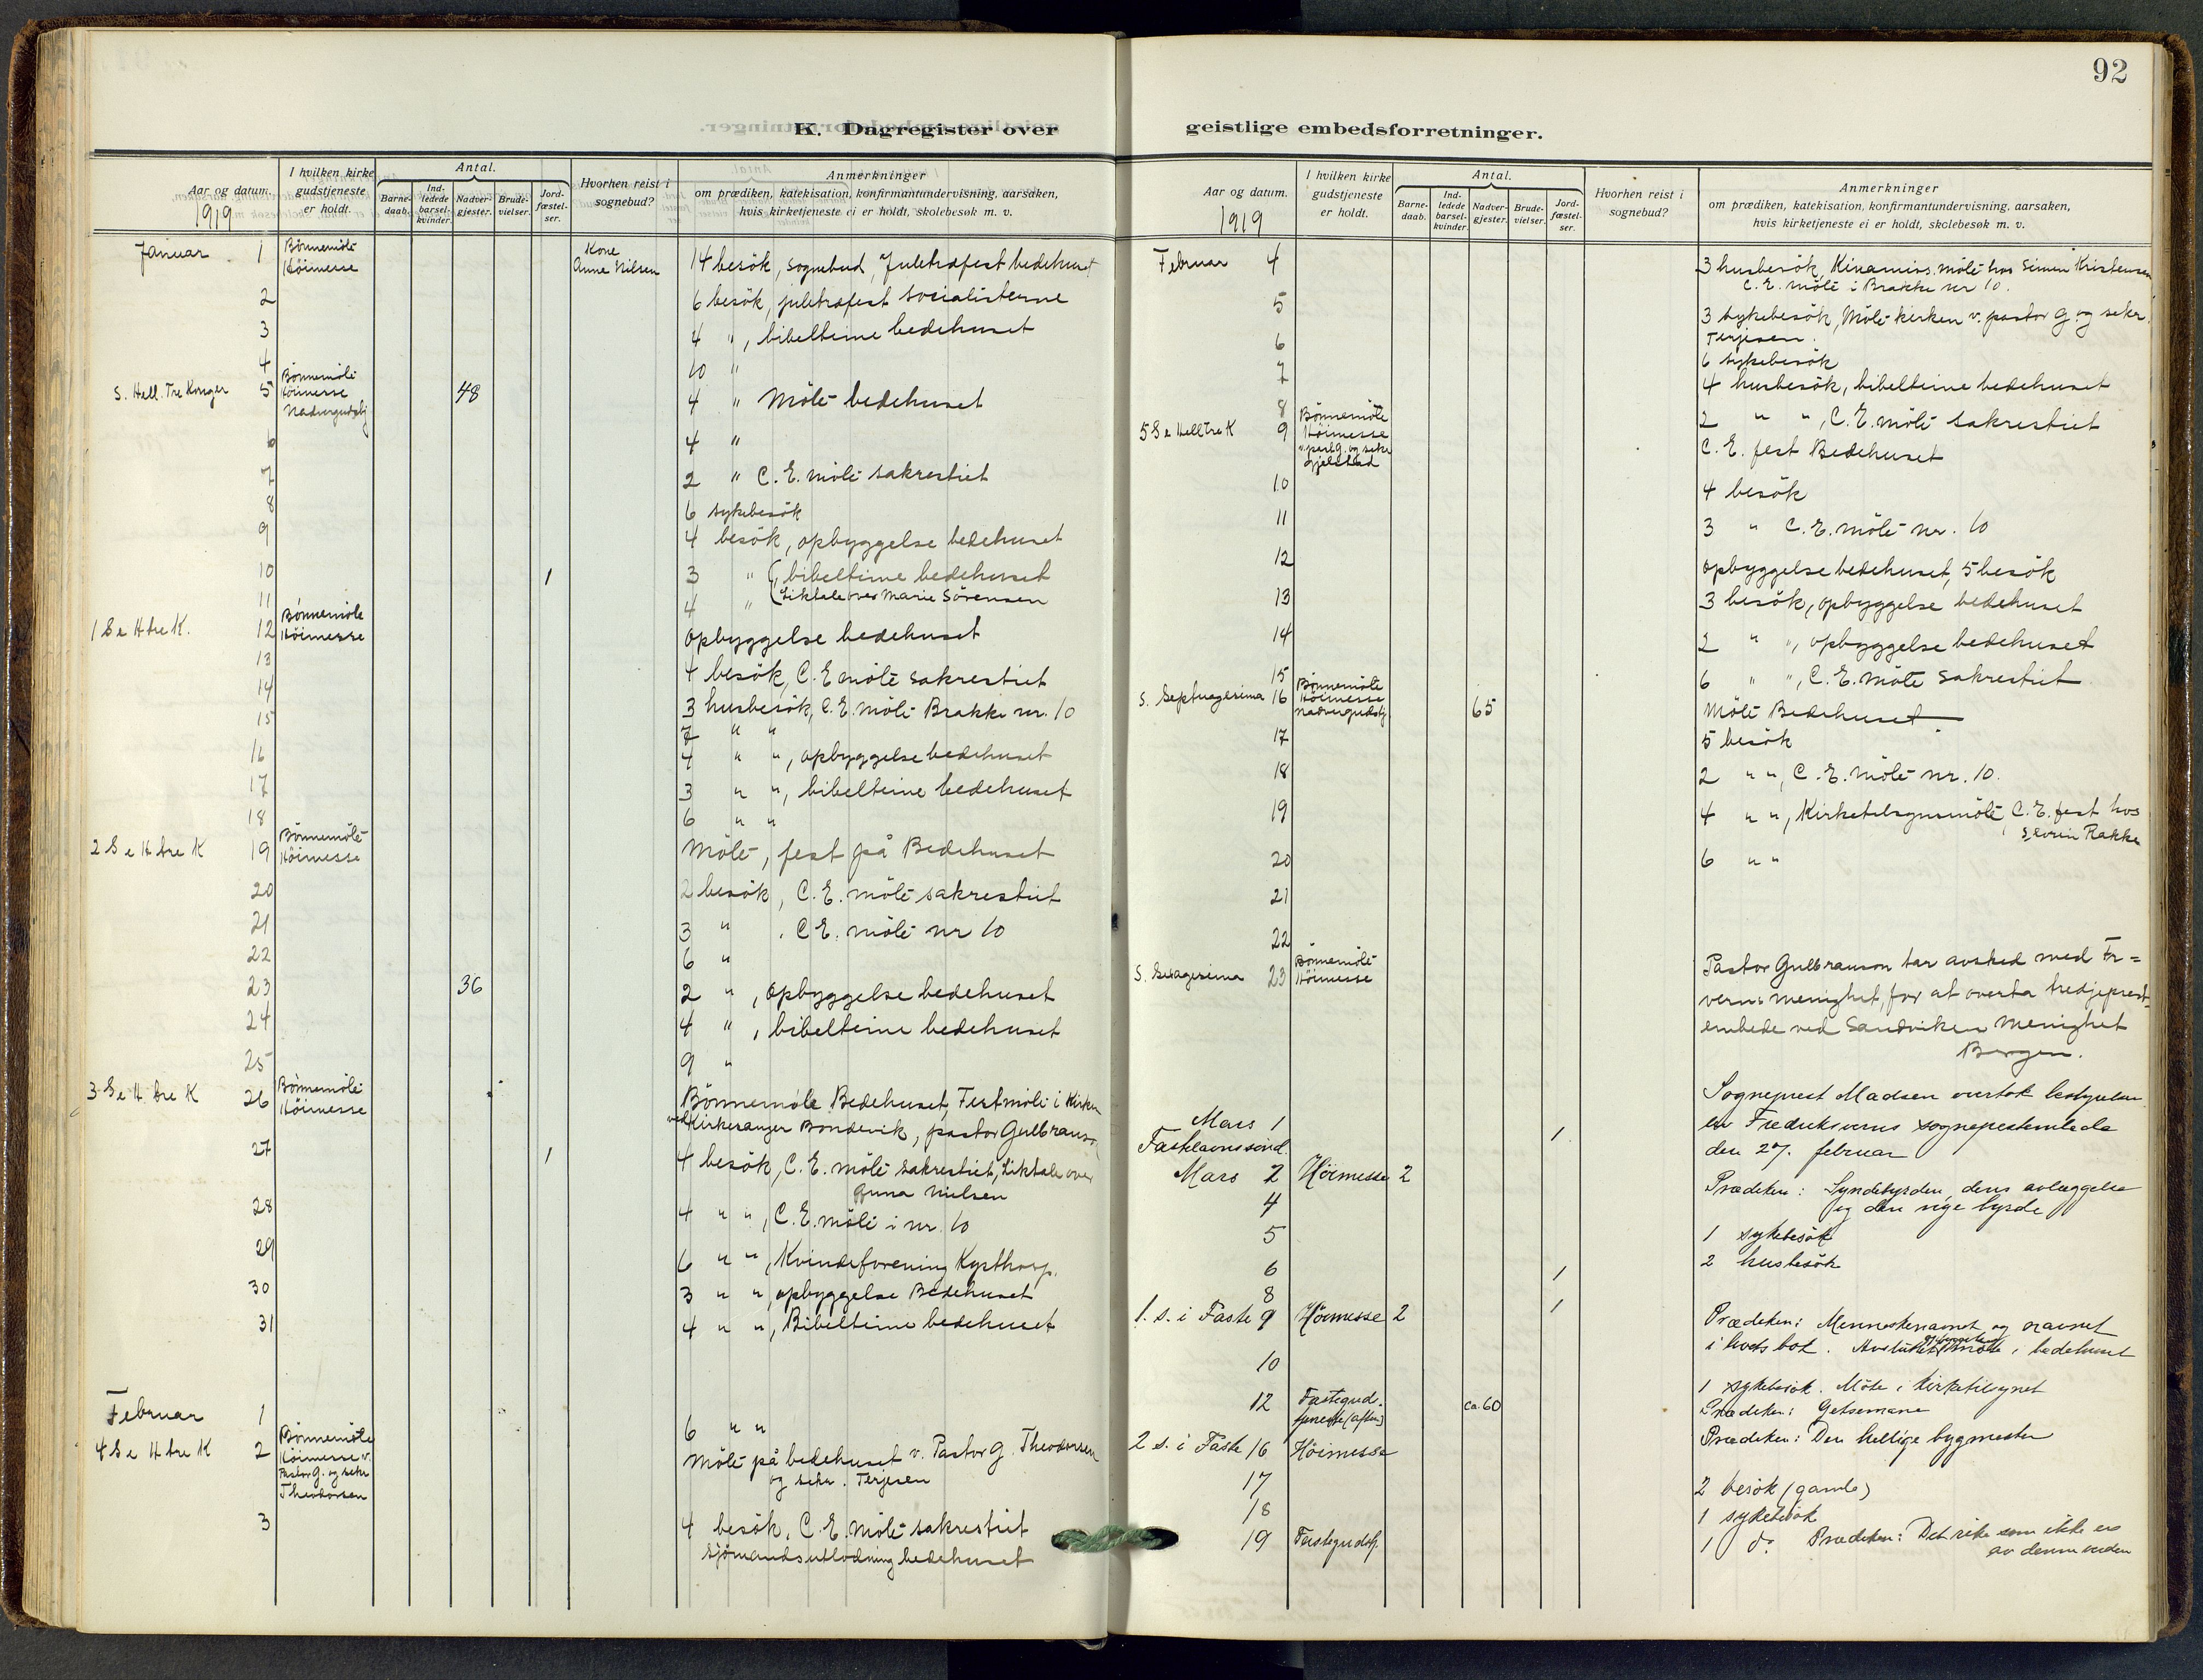 92
K. Dagregister over geistlige embedsforretninger.
Aar og datum. 1919
I hvilken kirke gudstjeneste er holdt.
Antal.
Barne-daab.
Ind-ledede barsel-kvinder.
Nadver-gjester.
Brude-vielser.
Jord-fæstel-ser.
Hvorhen reist i sognebud?
Anmerkninger
om prædiken, katekisation, konfirmantundervisning, aarsaken,
hvis kirketjeneste ei er holdt, skolebesøk m. v.
Januar 1 Bönnemöte Höimesse Kone Anne Nilsen 14 besök, sognebud, Juletræfest bedehuset
2 6 besök, juletræfest socialisterne
3 4 ", bibeltime bedehuset
4 10 "
S. Hell. Tre Konger 5 Bönnemöte Höimesse Nadvergudstj 48 4 " Möte bedehuset
6 4 "
7 2 " C. E. möte sakrestiet
8 6 sykebesök
9 4 besök, opbyggelse bedehuset
10 1 3 " bibeltime bedehuset
Liktale over Marie Sörensen
11 4 "
1 S e H tre K. 12 Bönnemöte Höimesse opbyggelse bedehuset
13 4 besök, C. E möte sakrestiet
14 3 husbesök, C. E. möte Brakke nr. 10
15 7 " "
16 4 " ", opbyggelse bedehuset
17 3 " ", bibeltime bedehuset
18 6 " "
2 S e H tre K 19 Bönnemöte Höimesse Möte, fest på Bedehuset
20 2 besök, C. E. möte sakrestiet
21 3 " . C E. möte nr 10
22 6 "
23 36 2 ", opbyggelse bedehuset
24 4 ", bibeltime bedehuset
25 9 "
3 S e H tre K 26 Bönnemöte Höimesse Bönnemöte Bedehuset, Festmöte i Kirken
ved Kirkesanger Bondevik, pastor Gulbranson
27 1 4 besök, C. E. möte sakrestiet, Liktale over
Gunna Nielsen
28 4 " ", C. E. möte i nr. 10
29 6 " ", Kvindeforening Kysthosp.
30 3 " ", opbyggelse Bedehuset
31 4 " ", Bibeltime bedehuset
Februar 1 6 " "
4 S e H tre K 2 Bönnemöte Höimesse v. Pastor G. og sekr Theodorsen Möte på bedehuset v. Pastor G. Theodorsen
og sekr. Terjesen
3 4 besök, C. E. möte sakrestiet
Sjömandsutlodning bedehuset
Aar og datum. 1919
I hvilken kirke gudstjeneste er holdt.
Antal.
Barne-daab.
Ind-ledede barsel-kvinder.
Nadver-gjester.
Brude-vielser.
Jord-fæstel-ser.
Hvorhen reist i sognebud?
Anmerkninger
om prædiken, katekisation, konfirmantundervisning, aarsaken,
hvis kirketjeneste ei er holdt, skolebesøk m. v.
Februar 4 3 husbesök, Kinamiss. möte hos Simen Kristensen
C. E. möte i Brakke nr 10.
5 3 sykebesök, Möte kirken v. pastor G og sekr.
Terjesen.
6 6 sykebesök
7 4 husbesök, bibeltime bedehuset
8 2 " ", C. E. möte sakrestiet
5 S e Hell tre K 9 Bönnemöte Höimesse v. past G. og sekr Gjelstad C. E. fest Bedehuset
10 4 besök
11 3 " C. E. möte nr. 10
12 opbyggelse bedehuset, 5 besök
13 3 besök, opbyggelse bedehuset
14 2 " ", opbyggelse bedehuset
15 6 " ", C. E. möte sakrestiet
S. Septuagesima 16 Bönnemöte Höimesse Nadvergudstj. 65 Möte Bedehuset
17 5 besök
18 2 " ", C. E. möte nr. 10.
19 4 " ", Kirketilsynsmöte, C. E. fest hos
Severin Rakke
20 6 " "
21
22
S. Sexagesima 23 Bönnemöte Höimesse Pastor Gulbranson tar avsked med Fr=
verns menighet, for at overta tredjeprest=
embede ved Sandviken Menighet
Bergen.
Sogneprest Madsen overtok bestyrelsen
av Fredriksverns sogneprestembede
den 27. februar
Mars 1 1
Fastelavnssönd.
Mars 2 Höimesse 2 Prædiken: Syndebyrden, dens avlæggelse
og den nye byrde
4 1 sykebesök
5 2 husbesök
6 1
8 1
1. s. i Faste 9 Höimesse 2 Prædiken: Menneskenavnet og navnet
i livets bok. Avsluttet möte i bedehuset
10 1 sykebesök. Möte i Kirketilsynet
12 Fastegudstjeneste (aften) ca. 60 Prædiken: Getsemane
2 s. i Faste 16 Höimesse Prædiken: Den hellige bygmester
17 2 besök (gamle)
18 1 sykebesök
19 Fastegudstj. 1 do Prædiken: Det rike som ikke er
av denne verden